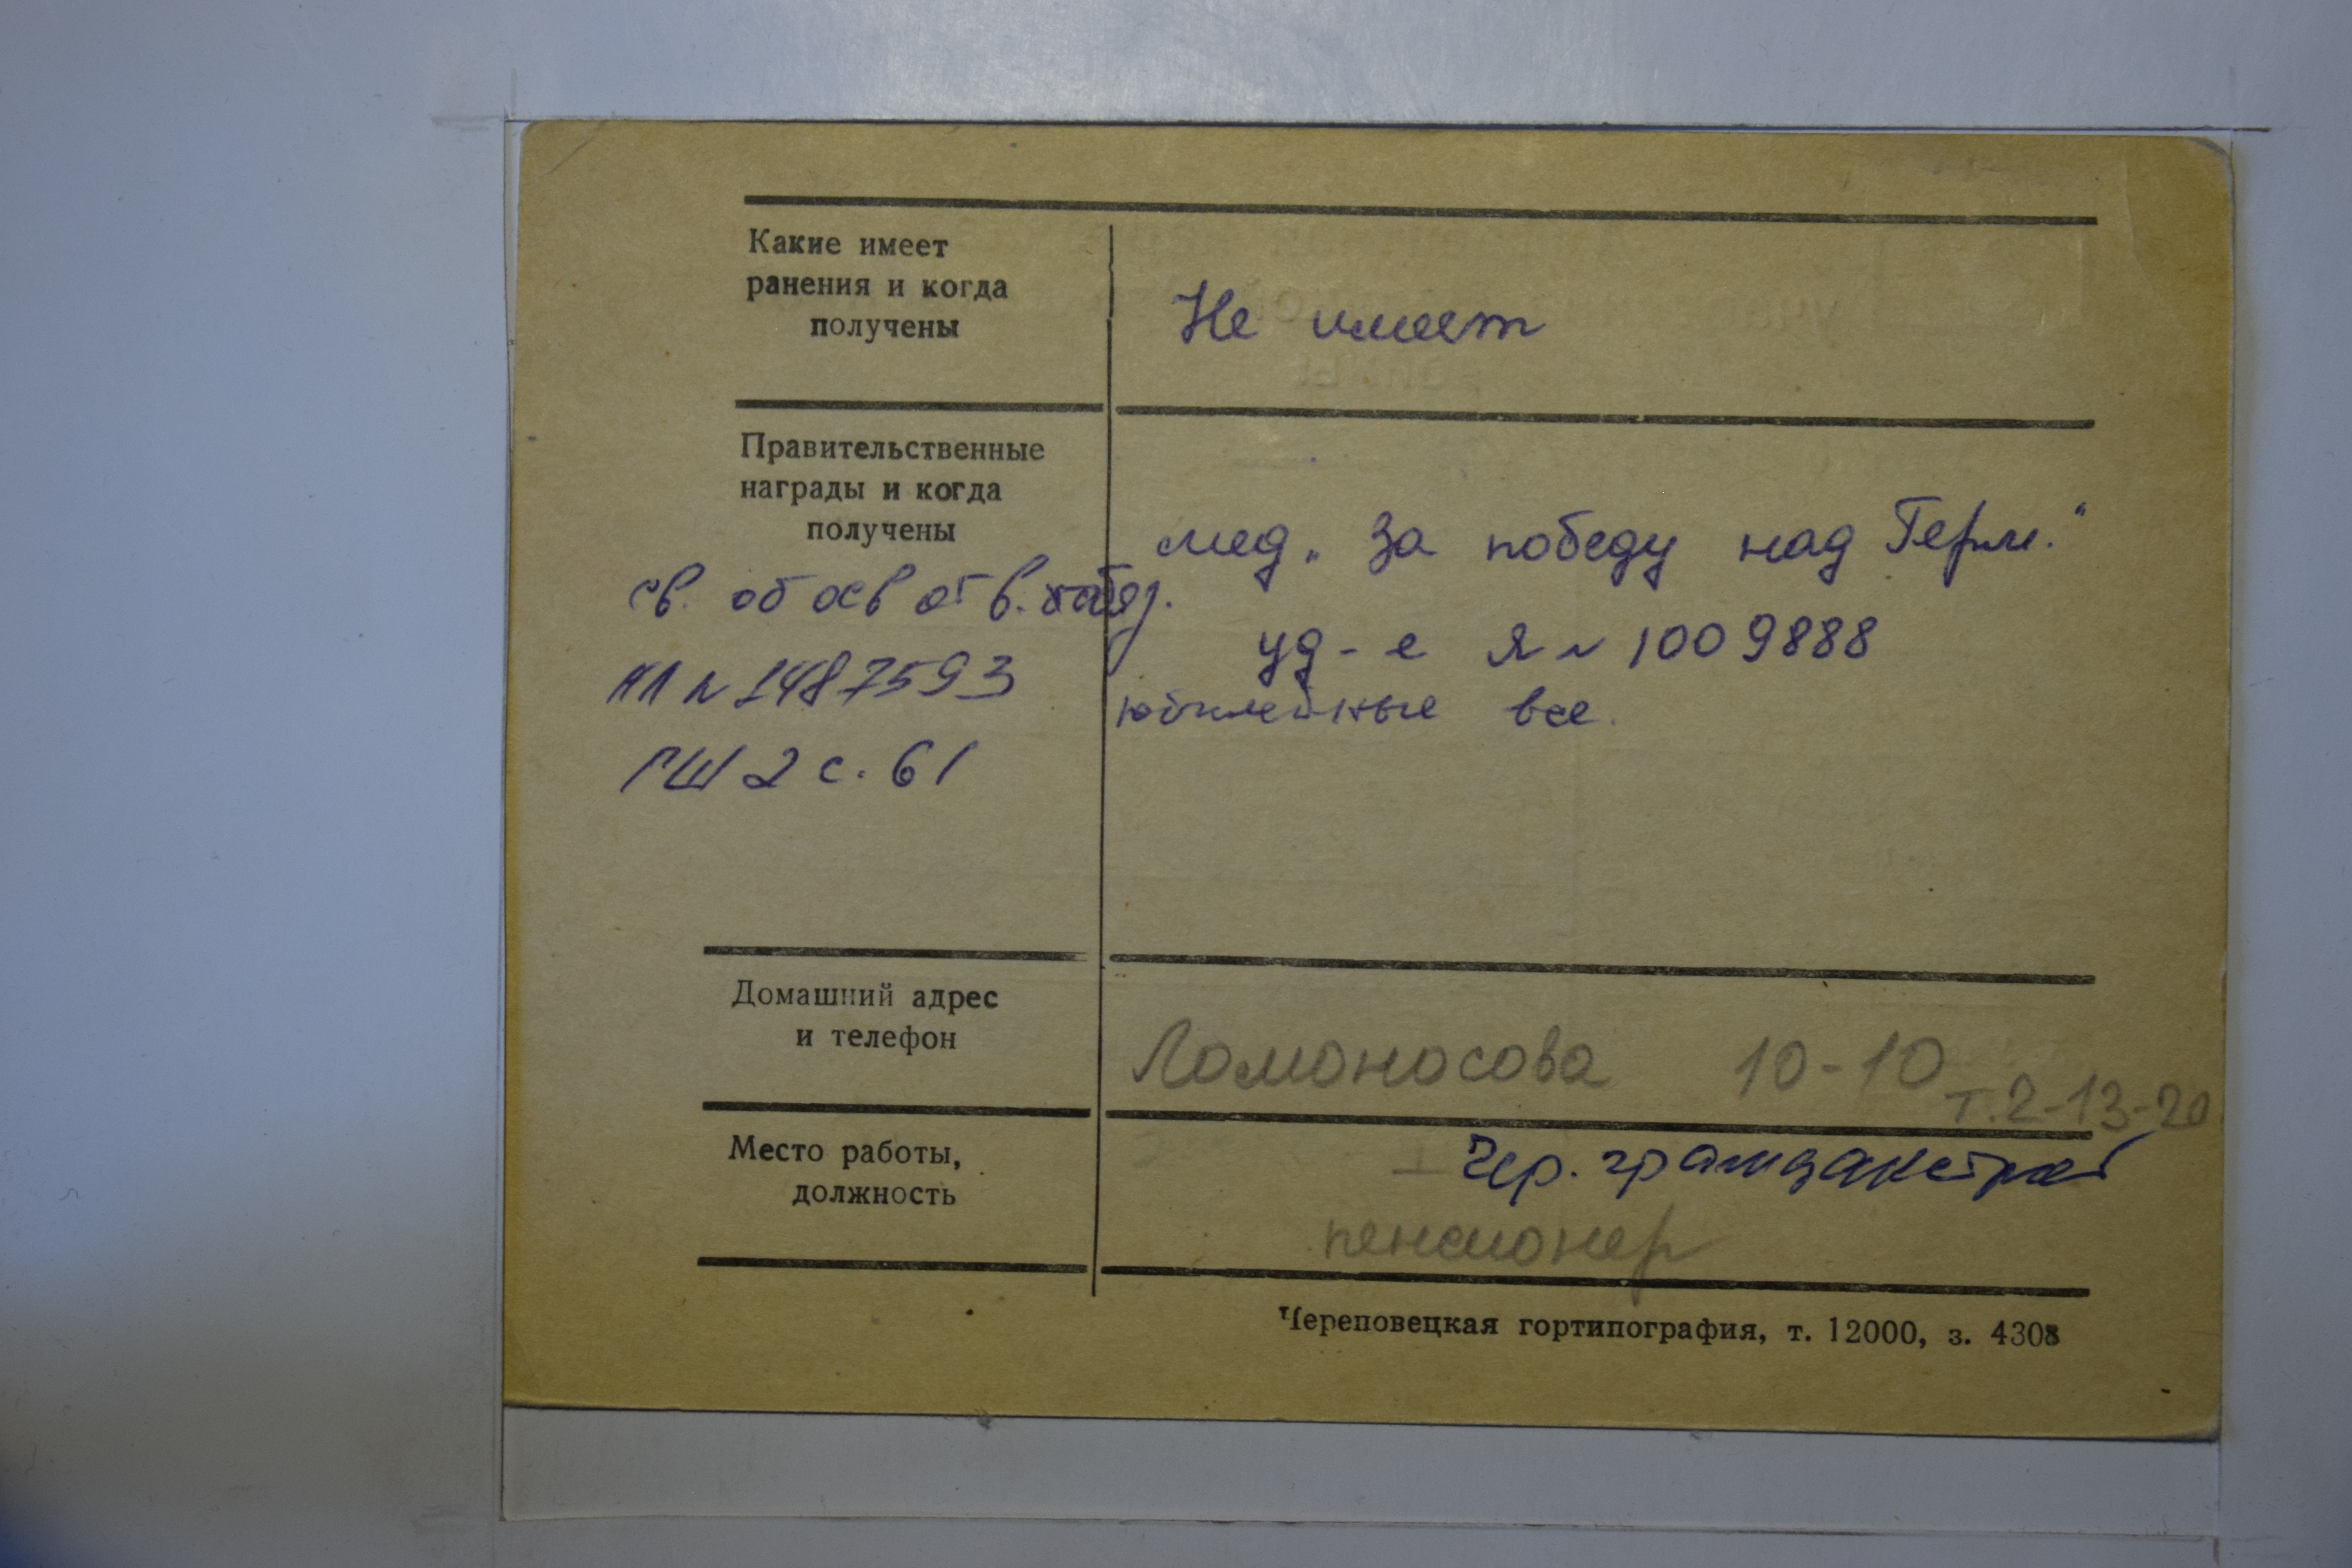 Какие имеет
ранения и когда
получены
Не имеет
Правительственные
награды и когда
получены
мед. „За победу над Герм."
уд-е Я № 1009888
юбилейные все.
св. об осв от в.
НЛ № 1487593
ГШ 2 с. 61
Домашний адрес
и телефон
Ломоносова 10-10
т. 2-13-20
Место работы,
должность
Чер.
пенсионер
Череповецкая гортипография, т. 12000, з. 4308